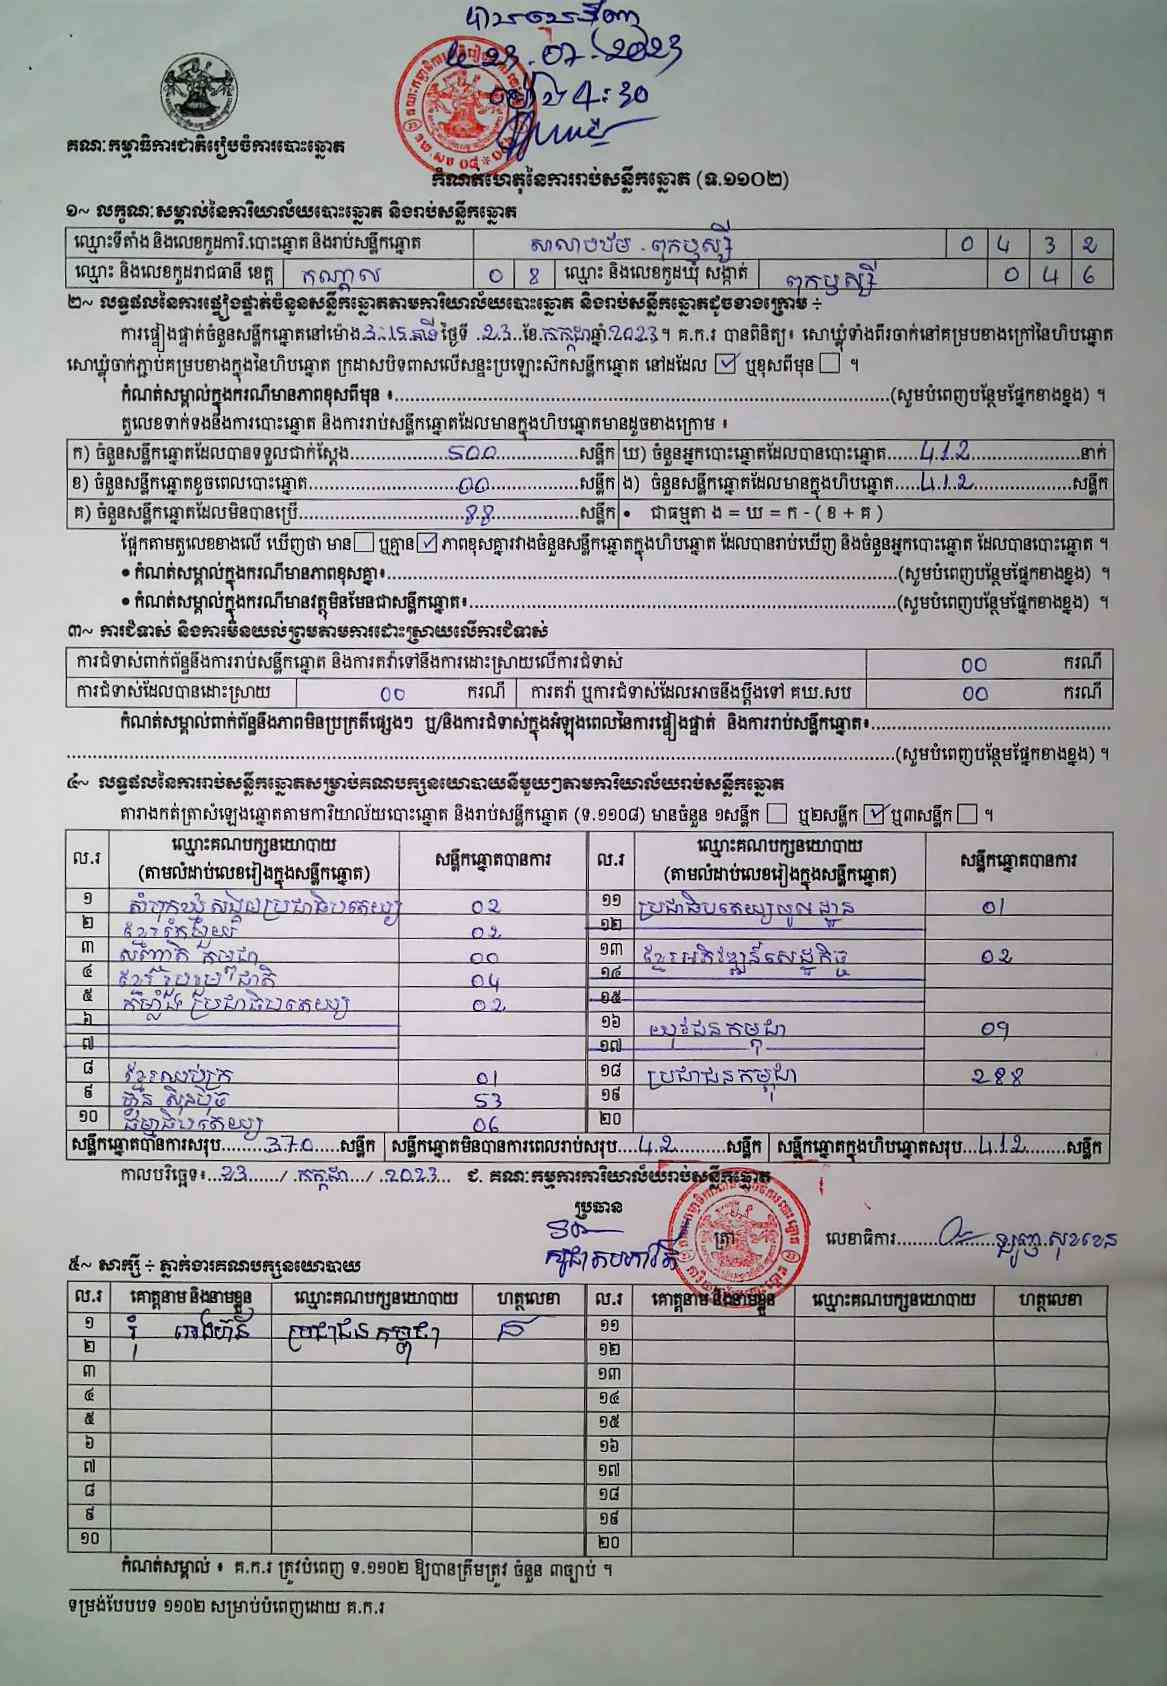 បានឃើញ
ថ្ងៃ 23.07.2023
ម៉ោង 4:30
គណៈកម្មាធិការជាតិរៀបចំការបោះឆ្នោត
កំណត់ហេតុនៃការរាប់សន្លឹកឆ្នោត (ទ.១១០២)
១~ លក្ខណៈសម្គាល់នៃការិយាល័យបោះឆ្នោត និងរាប់សន្លឹកឆ្នោត
ឈ្មោះទីតាំង និងលេខកូដការិ.បោះឆ្នោត និងរាប់សន្លឹកឆ្នោត 0 4 3 2
ឈ្មោះ និងលេខកូដរាជធានី ខេត្ត កណ្តាល 0 8 ឈ្មោះ និងលេខកូដឃុំ សង្កាត់ ពុកឫស្សី 0 4 6
២~ លទ្ធផលនៃការផ្ទៀងផ្ទាត់ចំនួនសន្លឹកឆ្នោតតាមការិយាល័យបោះឆ្នោត និងរាប់សន្លឹកឆ្នោតដូចខាងក្រោម ÷
ការផ្ទៀងផ្ទាត់ចំនួនសន្លឹកឆ្នោតនៅម៉ោង 3:15 នាទី ថ្ងៃទី 23 ខែ កក្កដា ឆ្នាំ 2023។ គ.ក.រ បានពិនិត្យ៖ សោឃ្លុំទាំងពីរចាក់នៅគម្របខាងក្រៅនៃហិបឆ្នោត
សោឃ្លុំចាក់ភ្ជាប់គម្របខាងក្នុងនៃហិបឆ្នោត ក្រដាសបិទពាសលើសន្ទះប្រឡោះស៊កសន្លឹកឆ្នោត នៅដដែល ☑ ឬខុសពីមុន ☐ ។
កំណត់សម្គាល់ក្នុងករណីមានភាពខុសពីមុន ៖...(សូមបំពេញបន្ថែមផ្នែកខាងខ្នង) ។
តួលេខទាក់ទងនឹងការបោះឆ្នោត និងការរាប់សន្លឹកឆ្នោតដែលមានក្នុងហិបឆ្នោតមានដូចខាងក្រោម ៖
ក) ចំនួនសន្លឹកឆ្នោតដែលបានទទួលជាក់ស្តែង...500...សន្លឹក ឃ) ចំនួនអ្នកបោះឆ្នោតដែលបានបោះឆ្នោត...412...នាក់
ខ) ចំនួនសន្លឹកឆ្នោតខូចពេលបោះឆ្នោត...00...សន្លឹក ង) ចំនួនសន្លឹកឆ្នោតដែលមានក្នុងហិបឆ្នោត...412...សន្លឹក
គ) ចំនួនសន្លឹកឆ្នោតដែលមិនបានប្រើ...88...សន្លឹក • ជាធម្មតា ង = ឃ = ក - ( ខ + គ )
ផ្អែកតាមតួលេខខាងលើ ឃើញថា មាន ☐ ឬគ្មាន ☑ ភាពខុសគ្នារវាងចំនួនសន្លឹកឆ្នោតក្នុងហិបឆ្នោត ដែលបានរាប់ឃើញ និងចំនួនអ្នកបោះឆ្នោត ដែលបានបោះឆ្នោត ។
• កំណត់សម្គាល់ក្នុងករណីមានភាពខុសគ្នា៖...(សូមបំពេញបន្ថែមផ្នែកខាងខ្នង) ។
• កំណត់សម្គាល់ក្នុងករណីមានវត្ថុមិនមែនជាសន្លឹកឆ្នោត៖...(សូមបំពេញបន្ថែមផ្នែកខាងខ្នង) ។
៣~ ការជំទាស់ និងការមិនយល់ព្រមតាមការដោះស្រាយលើការជំទាស់
ការជំទាស់ពាក់ព័ន្ធនឹងការរាប់សន្លឹកឆ្នោត និងការតវ៉ាទៅនឹងការដោះស្រាយលើការជំទាស់ 00 ករណី
ការជំទាស់ដែលបានដោះស្រាយ 00 ករណី ការតវ៉ា ឬការជំទាស់ដែលអាចនឹងប្តឹងទៅ គឃ.សប 00 ករណី
កំណត់សម្គាល់ពាក់ព័ន្ធនឹងភាពមិនប្រក្រតីផ្សេងៗ ឬ/និងការជំទាស់ក្នុងអំឡុងពេលនៃការផ្ទៀងផ្ទាត់ និងការរាប់សន្លឹកឆ្នោត៖...
...(សូមបំពេញបន្ថែមផ្នែកខាងខ្នង) ។
៤~ លទ្ធផលនៃការរាប់សន្លឹកឆ្នោតសម្រាប់គណបក្សនយោបាយនីមួយៗតាមការិយាល័យរាប់សន្លឹកឆ្នោត
តារាងកត់ត្រាសំឡេងឆ្នោតតាមការិយាល័យបោះឆ្នោត និងរាប់សន្លឹកឆ្នោត (ទ.១១០៨) មានចំនួន ១សន្លឹក ☐ ឬ២សន្លឹក ☑ ឬ៣សន្លឹក ☐ ។
ល.រ ឈ្មោះគណបក្សនយោបាយ (តាមលំដាប់លេខរៀងក្នុងសន្លឹកឆ្នោត) សន្លឹកឆ្នោតបានការ ល.រ ឈ្មោះគណបក្សនយោបាយ (តាមលំដាប់លេខរៀងក្នុងសន្លឹកឆ្នោត) សន្លឹកឆ្នោតបានការ
១ សំបុកឃ្មុំសង្គមប្រជាធិបតេយ្យ 02 ១១ ប្រជាធិបតេយ្យមូលដ្ឋាន 01
២ ខ្មែរតែមួយ 02 ១២
៣ សញ្ជាតិកម្ពុជា 00 ១៣ ខ្មែរអភិវឌ្ឍន៍សេដ្ឋកិច្ច 02
៤ ខ្មែររួបរួមជាតិ 04 ១៤
៥ កម្លាំងប្រជាធិបតេយ្យ 02 ១៥
៦ ១៦ យុវជនកម្ពុជា 09
៧ ១៧
៨ ខ្មែរឈប់ក្រ 01 ១៨ ប្រជាជនកម្ពុជា 288
៩ ហ្វ៊ុនស៊ិនប៉ិច 53 ១៩
១០ ធម្មាធិបតេយ្យ 06 ២០
សន្លឹកឆ្នោតបានការសរុប...370...សន្លឹក សន្លឹកឆ្នោតមិនបានការពេលរាប់សរុប...42...សន្លឹក សន្លឹកឆ្នោតក្នុងហិបឆ្នោតសរុប...412...សន្លឹក
កាលបរិច្ឆេទ៖...23.../ កក្កដា / 2023... ជ. គណៈកម្មការការិយាល័យរាប់សន្លឹកឆ្នោត
ប្រធាន
ត្រា
លេខាធិការ
៥~ សាក្សី ÷ ភ្នាក់ងារគណបក្សនយោបាយ
ល.រ គោត្តនាម និងនាមខ្លួន ឈ្មោះគណបក្សនយោបាយ ហត្ថលេខា ល.រ គោត្តនាម និងនាមខ្លួន ឈ្មោះគណបក្សនយោបាយ ហត្ថលេខា
១ ប្រជាជនកម្ពុជា ១១
២ ១២
៣ ១៣
៤ ១៤
៥ ១៥
៦ ១៦
៧ ១៧
៨ ១៨
៩ ១៩
១០ ២០
កំណត់សម្គាល់ ៖ គ.ក.រ ត្រូវបំពេញ ទ.១១០២ ឱ្យបានត្រឹមត្រូវ ចំនួន ៣ច្បាប់ ។
ទម្រង់បែបបទ ១១០២ សម្រាប់បំពេញដោយ គ.ក.រ